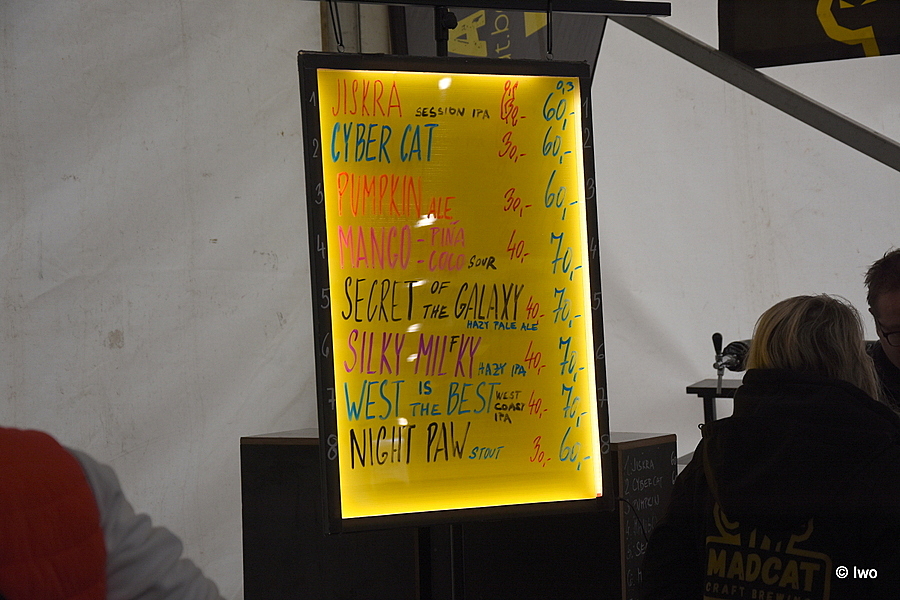 0,3
1 JISKRA SESSION IPA 60,-
2 CYBER CAT 30,- 60,- 2
3 PUMPKIN ALE 30,- 60,- 3
4 MANGO - PIÑA - COCO SOUR 40,- 70,- 4
5 SECRET OF THE GALAXY 40,- 70,- 5
HAZY PALE ALE
6 SILKY MILFKY HAZY IPA 40,- 70,- 6
7 WEST IS THE BEST WEST COAST IPA 40,- 70,- 7
8 NIGHT PAW STOUT 30,- 60,- 8
1 JISKRA
2 CYBER CAT
MADCAT
CRAFT BREWING
© Iwo